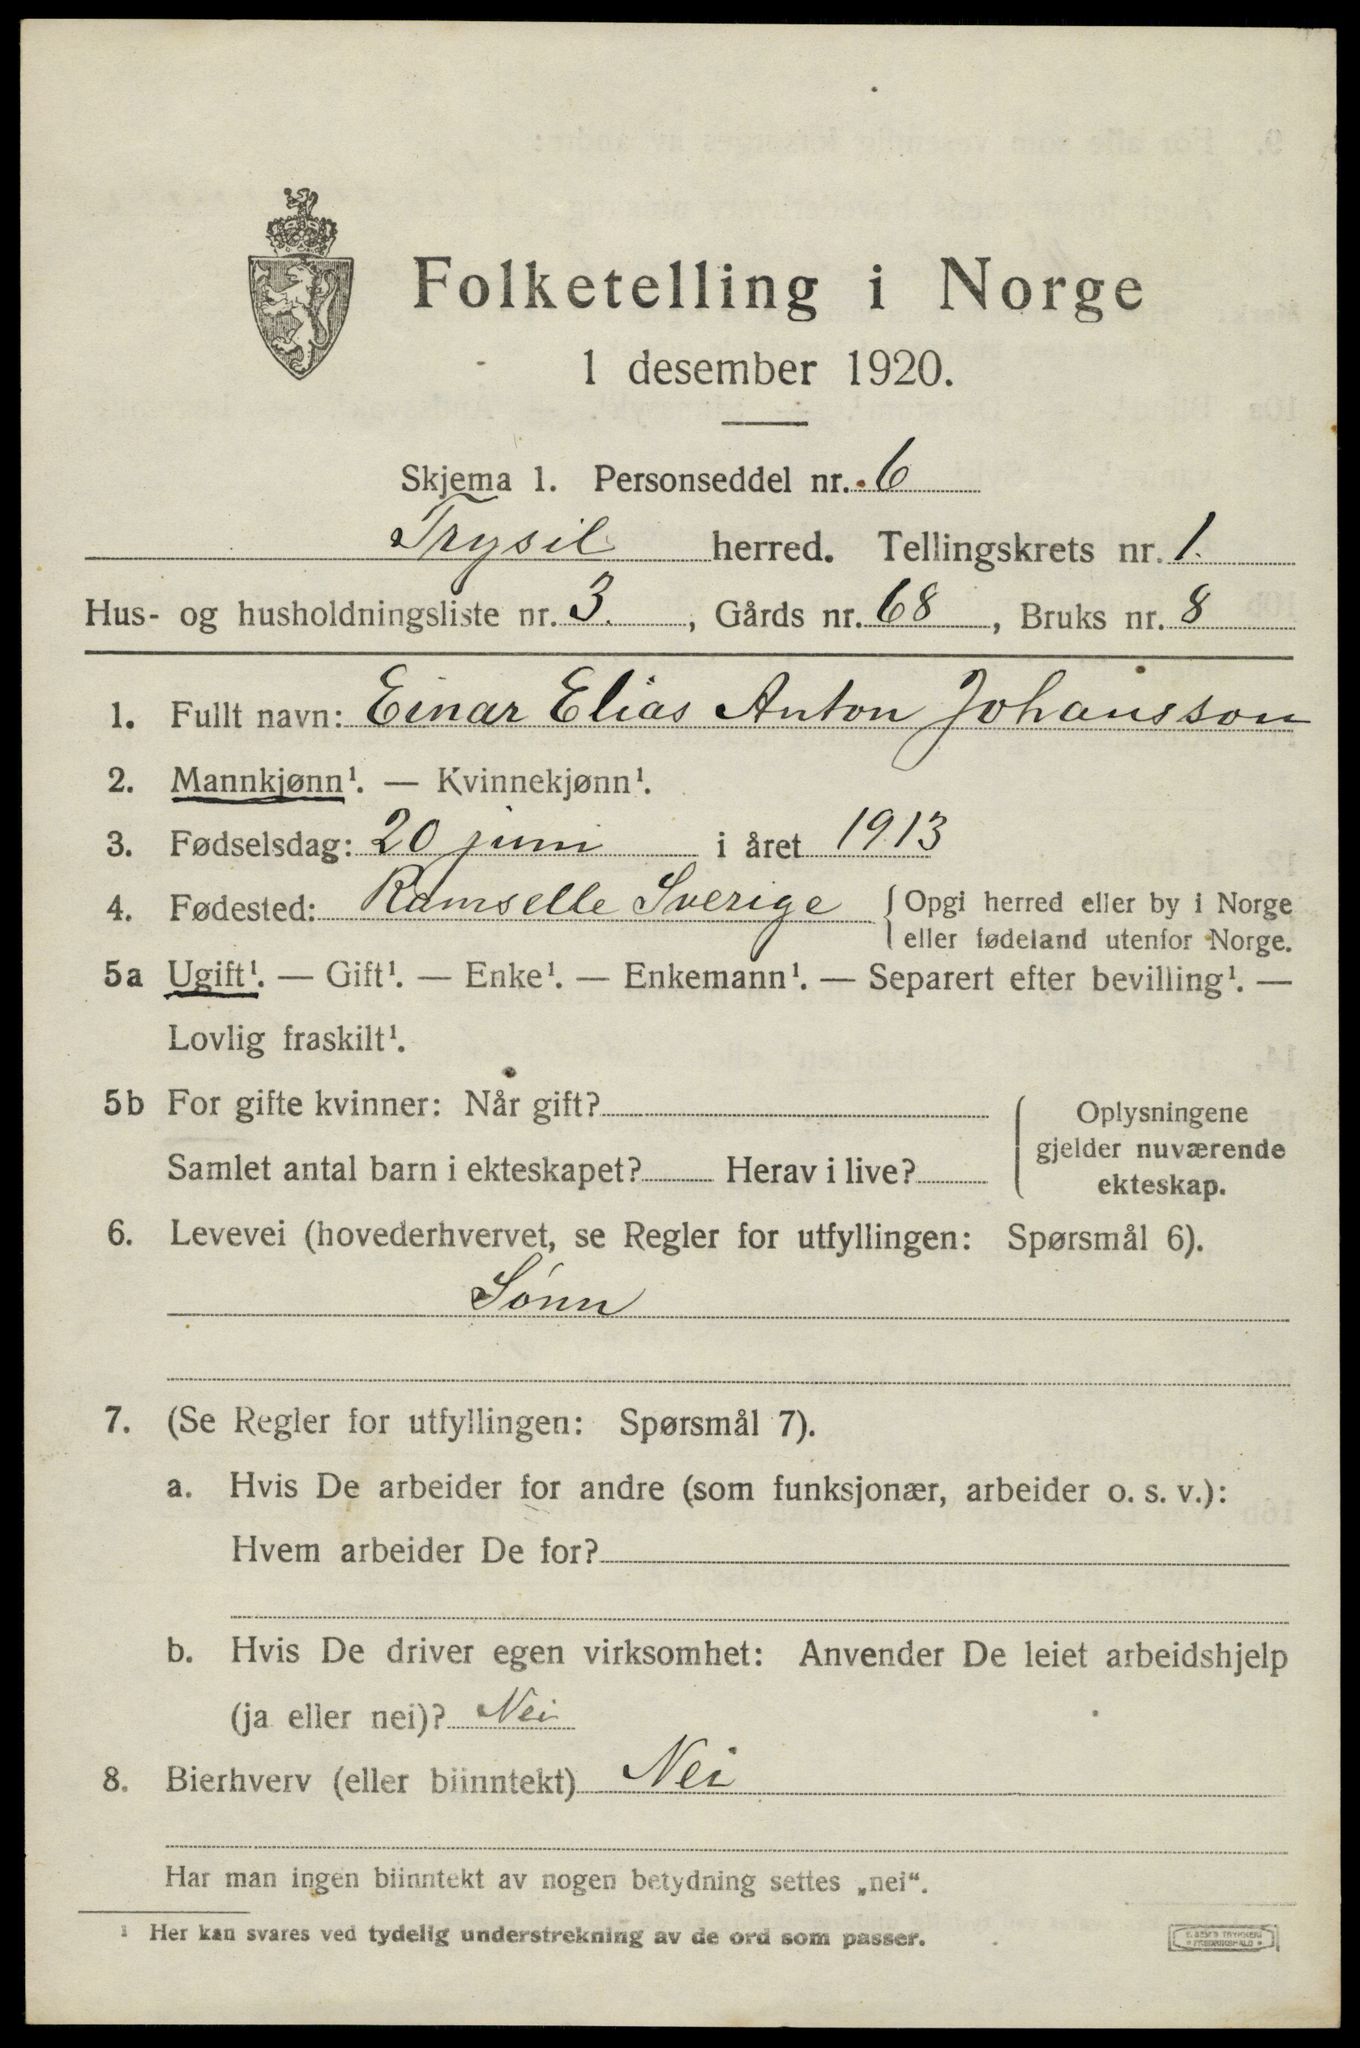 Folketelling i Norge
1 desember 1920.
Skjema 1. Personseddel nr. 6
Trysil herred. Tellingskrets nr. 1.
Hus- og husholdningsliste nr. 3. , Gårds nr. 68 , Bruks nr. 8
1. Fullt navn: Einar Elias Anton Johansson
2. Mannkjønn¹. — Kvinnekjønn¹.
3. Fødselsdag: 20 juni i året 1913
4. Fødested: Ramselle Sverige { Opgi herred eller by i Norge
eller fødeland utenfor Norge.
5a Ugift¹. — Gift¹. — Enke¹. — Enkemann¹. — Separert efter bevilling¹. —
Lovlig fraskilt¹.
5b For gifte kvinner: Når gift?
Samlet antal barn i ekteskapet? Herav i live?
Oplysningene
gjelder nuværende
ekteskap.
6. Levevei (hovederhvervet, se Regler for utfyllingen: Spørsmål 6).
Sønn
7. (Se Regler for utfyllingen: Spørsmål 7).
a. Hvis De arbeider for andre (som funksjonær, arbeider o. s. v.):
Hvem arbeider De for?
b. Hvis De driver egen virksomhet: Anvender De leiet arbeidshjelp
(ja eller nei)? Nei
8. Bierhverv (eller biinntekt) Nei
Har man ingen biinntekt av nogen betydning settes „nei“.
¹ Her kan svares ved tydelig understrekning av de ord som passer.